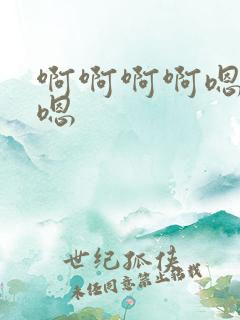 啊啊啊啊嗯
嗯
世纪孤侠
未经同意禁止转载